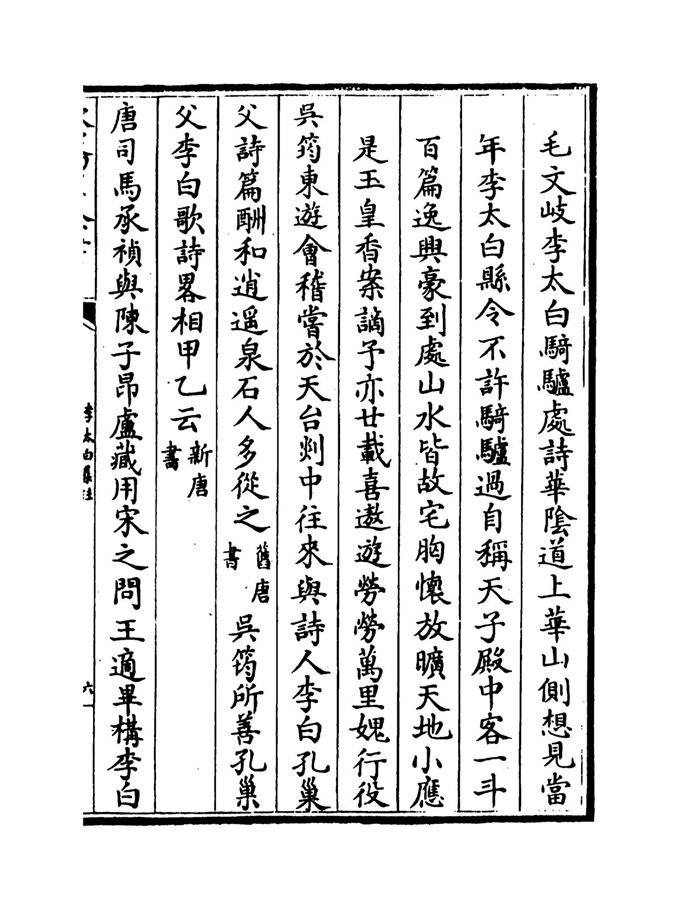 毛文岐李太白騎驢處詩華陰道上華山側想見當
年李太白縣令不許騎驢過自稱天子殿中客一斗
百篇逸興豪到處山水皆故宅胸懷放曠天地小應
是玉皇香案謫予亦廿載喜遨遊勞勞萬里媿行役
吳筠東遊會稽嘗於天台剡中往來與詩人李白孔巢
父詩篇酬和逍遥泉石人多從之
舊唐
書
吳筠所善孔巢
父李白歌詩畧相甲乙云
新唐
書
唐司馬承禎與陳子昂盧藏用宋之問王適畢構李白
李太白集注
六